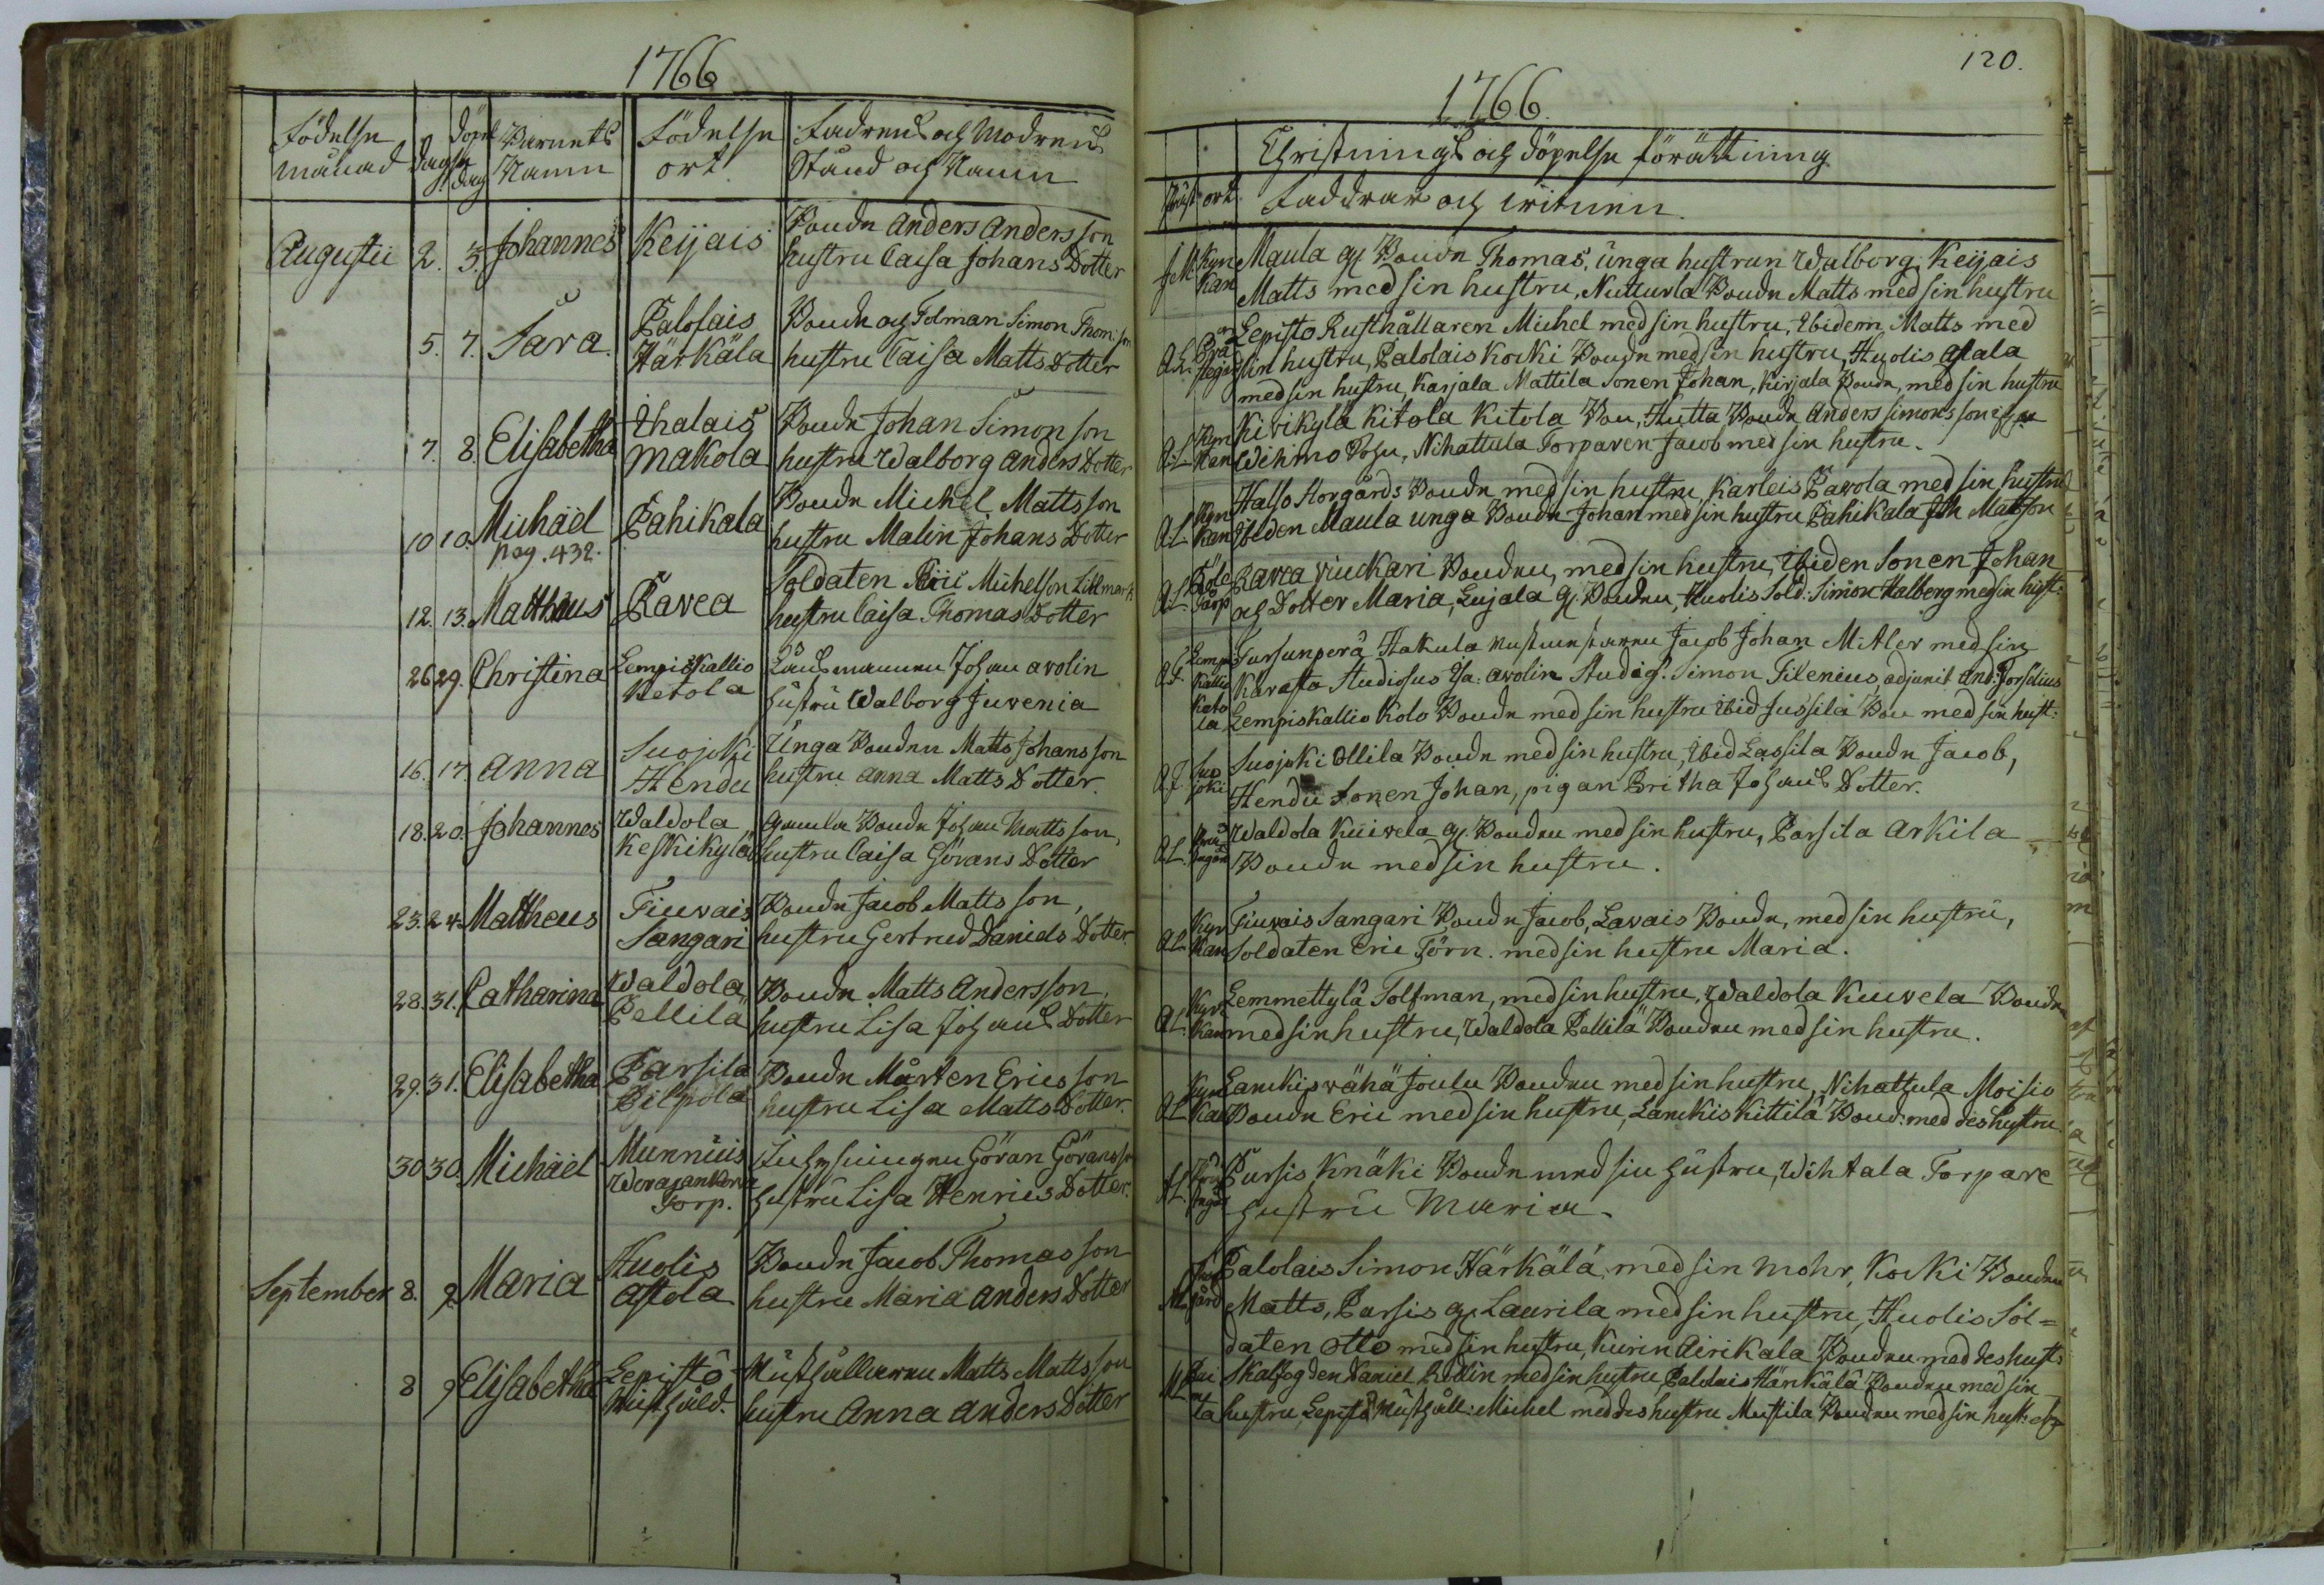 1766
Födelse
månad
dag
döpel
se
dag
Barnets
Namn
Födelse
ort
Fadrens och Modrens
Stånd och Namn
Augusti 2. 3. Johannes Keijais Bonden Anders Andersson
hustru Caisa Johans Dotter
5. 7. Sara. Palolais Bonde och Tolman Simon Thom:son
Härkälä hustru Caisa Matts Dotter
7. 8. Elisabetha Ihalais Bonden Johan Simonson
Makola hustru Walborg Anders Dotter
10 10. Michäel Pahikala Bonden Michel Mattsson
pag. 432. hustru Malin Johans Dotter
12. 13. Mattheus Pavea Soldaten Michelson
hustru Caisa Thomas Dotter
26 29. Christina Lempiskallio Länsmannen Johan Avolin
Ketola hustru Walborg Juvenia
16. 17. Anna Suojoki Unga Bonden Matts Johansson
Hendu hustru Anna Matts Dotter.
18. 20. Johannes Waldola Gamla Bonden Johan Mattsson,
Keskikylä hustru Caisa Görans Dotter
23. 24. Mattheus Tiuvais Bonden Jacob Mattsson,
Sangari hustru Gertrud Daniels Dotter.
28. 31. Catharina Waldola Bonden Matts Andersson,
Pellilä hustru Lisa Johans Dotter
29. 31. Elisabetha Parsila Bonden Mårten Ericsson
Pilpola hustru Lisa Matts Dotter.
30 30. Michäel Munnuis Inhysingen Göran Göransson
Torp. hustru Lisa Henrics Dotter.
September 8. 9. Maria Huolis Bonden Jacob Thomasson
Astola hustru Maria Anders Dotter
8 9 Elisabetha Lepistö Rusthållaren Matts Mattsson
Rusthåld. hustru Anna Anders Dotter
120.
1766.
Christnings och döpelse förättning
Präst ort. Faddrar och witnen
Kyr Maula g: Bonden Thomas, unga hustrun Walborg, Keijais
kan Matts med sin hustru, Nuttula Bonden Matts med sin hustru
Lepistö Rusthållaren Michel med sin hustru, Ibidem Matts med
sin hustru, Palolais Kocki Bonden med sin hustru, Huolis Astala
med sin hustru, Karjala Mattila Sonen Johan, Kirjala Bonden, med sin hustru
Kyr Kivikylä Kitola Kitola Bon, Hutta Bonden Anders Simonsson
kan Wehmo, Nihattula Torparen Jacob med sin hustru.
Kyr Halso Storgårds Bonden med sin hustru Karleis Pavola med sin hustru
kan Ibiden Maula unga Bonden Johan med sin hustru Pahikala Matsson
Pavea Riuckari Bonden, med sin hustru, Ibiden Sonen Johan
och Dotter Maria, Lujala g: Bonden, Huolis Sold: Simon Halberg med sin hust:
Lempis Tursunperä Hakula Jacob Johan med sin
kallio Karasto Studiosus Ja: Avolin Studios: Simon Filenius, adjunct And: Forselius
keto
la Lempiskallio Kolo Bonden med sin hustru Ibid Jussila Bon med sin hust:
Suo Suojoki Ollila Bonden med sin hustru, Ibid Lassila Bonden Jacob,
joki Hendu Sonen Johan, pigan Britha Johans Dotter.
Waldola Kuivela g: Bonden med sin hustru, Parsila Arkila
Bonden med sin hustru.
Kyr Tiuvais Sangari Bonden Jacob, Lavais Bonden, med sin hustru,
kan Soldaten Eric Törn. med sin hustru Maria.
Kyr Lemmettylä Tolfman, med sin hustru, Waldola Kuivela Bonden
kan med sin hustru, Waldola Pellilä Bonden med sin hustru.
Kyr Lauckis wähä Joulu Bonden med sin hustru, Nihattula Moisio
kan Bonden Eric med sin hustru, Lauckis Kittilä Bond: med des hustru
Pursis Knäki Bonden med sin hustru, Wihtala Torpare
hustru Maria.
Palolais Simon Härkälä, med sin Mohr, Kocki Bonden
gård Matts, Parsis g: Laurila med sin hustru, Huolis Sol=
daten Otto med sin hustru, Kurin Airikala Bonden med des hustr
Skalfogden Daniel med sin hustru, Palolais Härkälä Bonden med sin
hustru Lepistö Rusthåll: Michel med des hustru Mustila Bonden med sin hust: